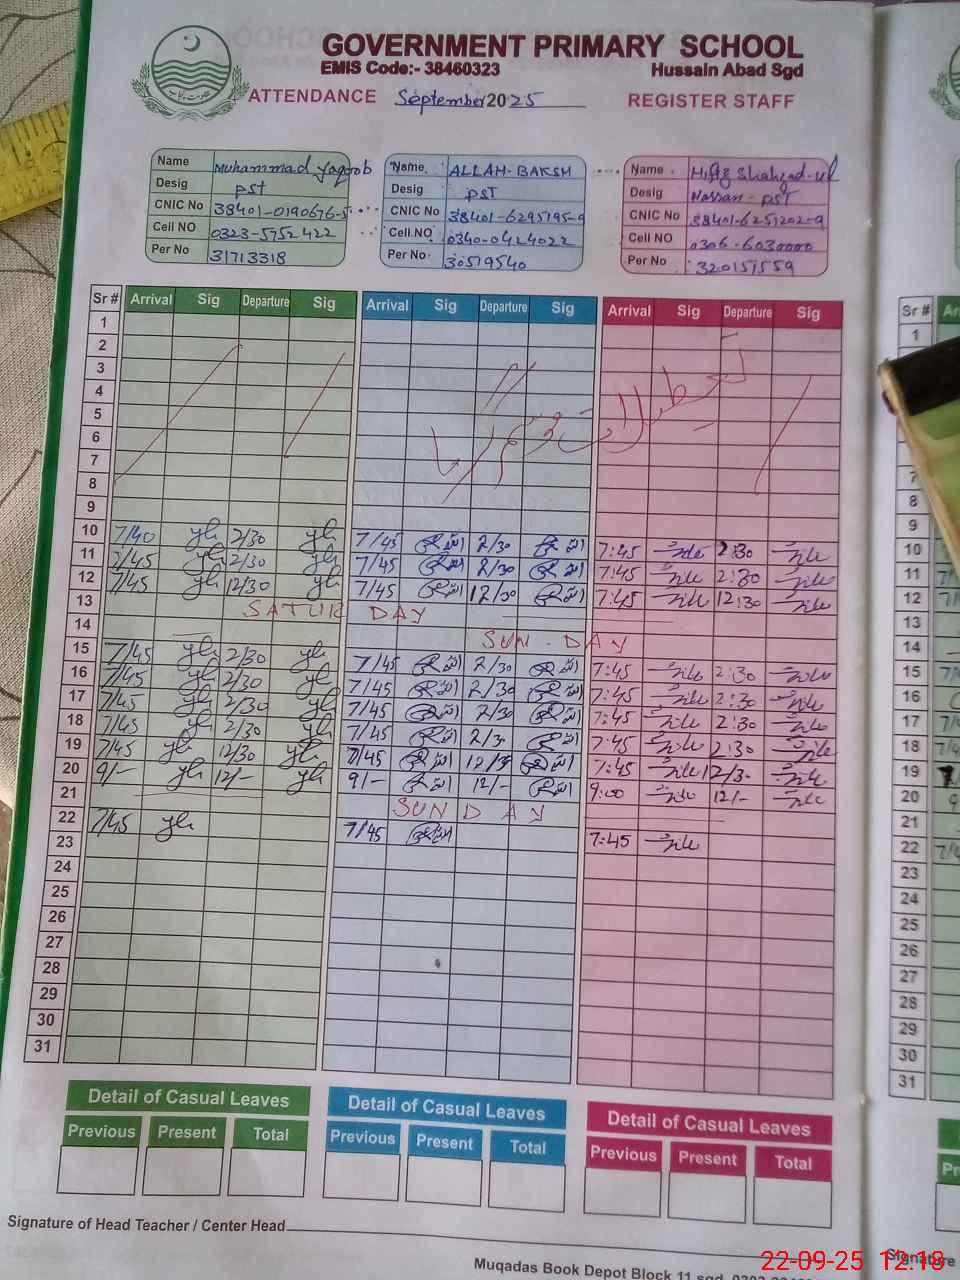 GOVERNMENT PRIMARY SCHOOL
EMIS Code:- 38460323 Hussain Abad Sgd
ATTENDANCE September 2025 REGISTER STAFF
Name Muhammad Yaqoob
Desig PST
CNIC No 38401-0190676-5
Cell NO 0323-5752422
Per No 31713318
Name ALLAH-BAKSH
Desig PST
CNIC No 38401-6295195-9
Cell NO 0340-0424022
Per No 30519540
Name Hifiz Shahzad-ul
Desig Hassan-PST
CNIC No 38401-6251202-9
Cell NO 0306-6030000
Per No 320151559
Sr # Arrival Sig Departure Sig Arrival Sig Departure Sig Arrival Sig Departure Sig
1
2
3
4
5
6
7
8
9
10 7/40 2/30 7/45 2/30 7:45 2:30
11 7/45 2/30 7/45 2/30 7:45 2:30
12 7/45 12/30 7/45 12/30 7:45 12:30
13 SATUR DAY
14 SUN-DAY
15 7/45 2/30 7/45 2/30 7:45 2:30
16 7/45 2/30 7/45 2/30 7:45 2:30
17 7/45 2/30 7/45 2/30 7:45 2:30
18 7/45 2/30 7/45 2/3 7:45 2:30
19 7/45 12/30 7/45 12/3 7:45 12/3
20 9/- 12/- 9/- 12/- 9:00 12/-
21 SUNDAY
22 7/45 7/45 7:45
23
24
25
26
27
28
29
30
31
Detail of Casual Leaves Detail of Casual Leaves Detail of Casual Leaves
Previous Present Total Previous Present Total Previous Present Total
Signature of Head Teacher / Center Head
Muqadas Book Depot Block 11 sgd
Sr #
1
7
8
9
10
11
12
13
14
15
16
17
18
19
20
21
22
23
24
25
26
27
28
29
30
31
Signature
22-09-25 12:18